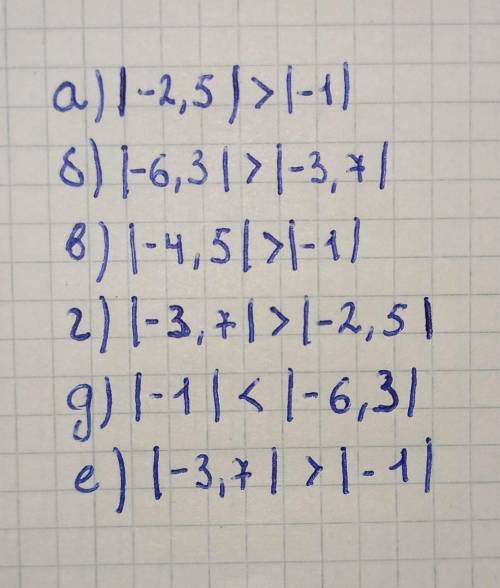 а) |-2,5|>|-1|
б) |-6,3|>|-3,7|
в) |-4,5|>|-1|
г) |-3,7|>|-2,5|
д) |-1|<|-6,3|
е) |-3,7|>|-1|